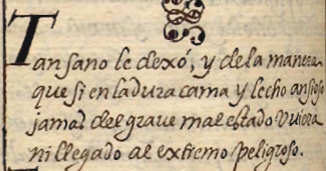 Tan sano le dexó, y dela manera
que si en la dura cama y lecho ansioso
jamas del grave mal estado uviera
ni llegado al extremo peligroso.